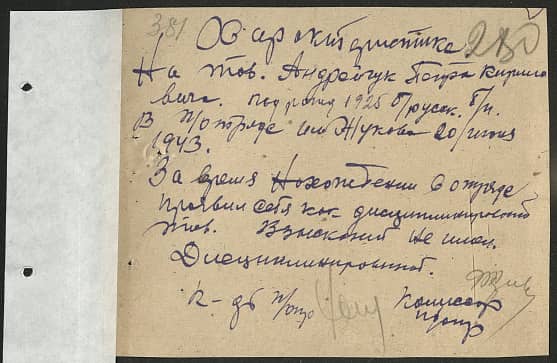 381
Характиристика 280
На тов. Андрейчук Петра Кирило
вича. под рожд 1925 б/русск. б/п.
В п/отряде им Жукова 20/июня
1943.
За время Нохождении в отряде
проявил себя как дисциплинированый
тов. Взысканий не имел.
Дисциплинированой.
К-др п/отр Комиссар
п/отр